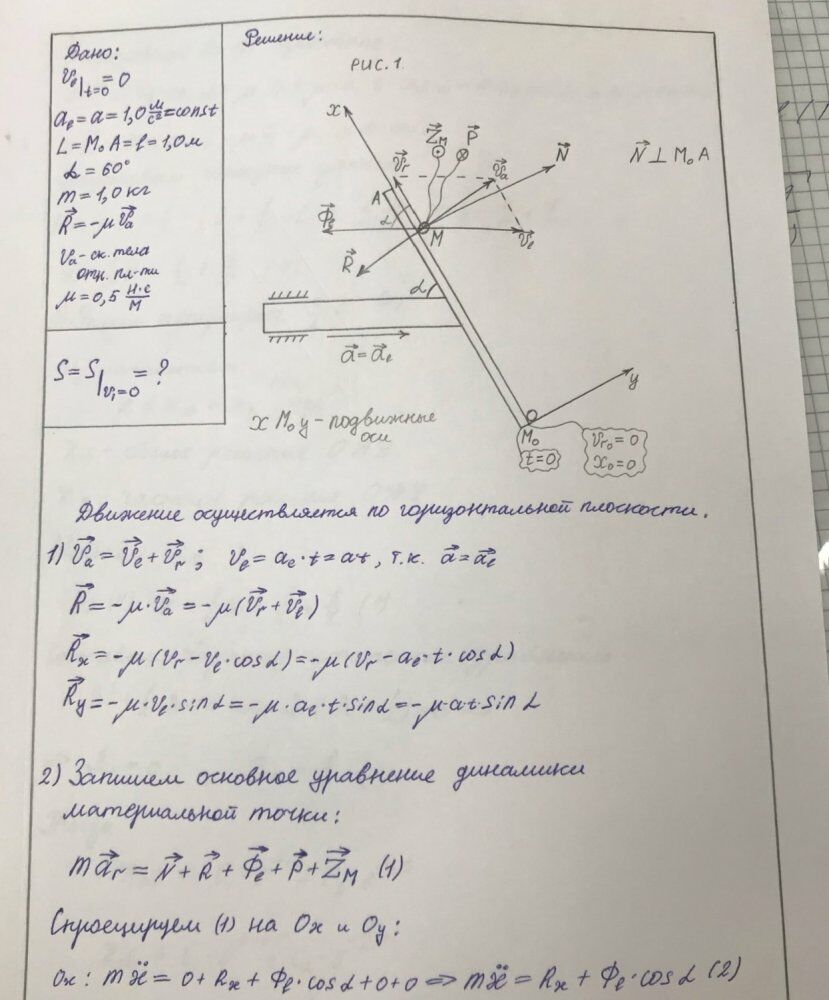 Дано:
v_e|_{t=0} = 0
a_e = a = 1,0 м/с² = const
L = M₀A = ℓ = 1,0 м
α = 60°
m = 1,0 кг
R⃗ = -μ v⃗_a
v_a - ск. тела
отн. пл-ти
μ = 0,5 Н·с/м
S = S|_{v_i=0} = ?
Решение:
РИС. 1.
x
Z⃗_м
P⃗
v⃗_r
v⃗_a
N⃗
N⃗ ⊥ M₀A
A
α
Φ⃗_e
M
v⃗_e
R⃗
α
a⃗ = a⃗_e
y
x M₀ y - подвижные
оси
M₀
t=0
v_{r0} = 0
x₀ = 0
Движение осуществляется по горизонтальной плоскости.
1) v⃗_a = v⃗_e + v⃗_r ; v_e = a_e·t = at, т.к. a⃗ = a⃗_e
R⃗ = -μ·v⃗_a = -μ(v⃗_r + v⃗_e)
R⃗_x = -μ(v_r - v_e·cosα) = -μ(v_r - a_e·t·cosα)
R⃗_y = -μ·v_e·sinα = -μ·a_e·t·sinα = -μ·a·t·sinα
2) Запишем основное уравнение динамики
материальной точки:
m a⃗_r = N⃗ + R⃗ + Φ⃗_e + P⃗ + Z⃗_M (1)
Спроецируем (1) на Ox и Oy:
Ox: mẍ = 0 + R_x + Φ_e·cosα + 0 + 0 => mẍ = R_x + Φ_e·cosα (2)